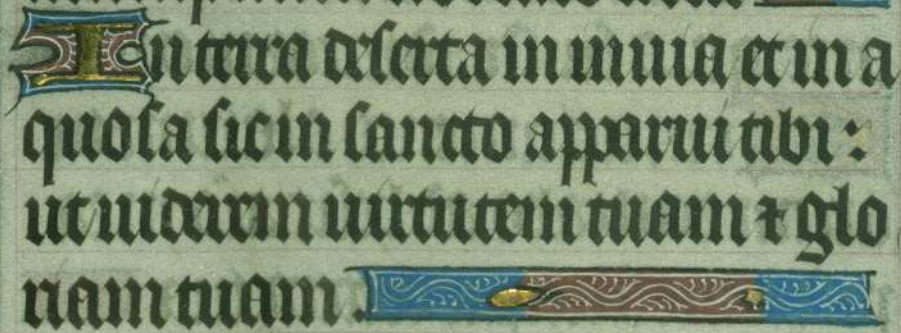 In terra deserta in inuia et in a
quosa sic in sancto apparui tibi :
ut uiderem uirtutem tuam ⁊ glo
riam tuam .